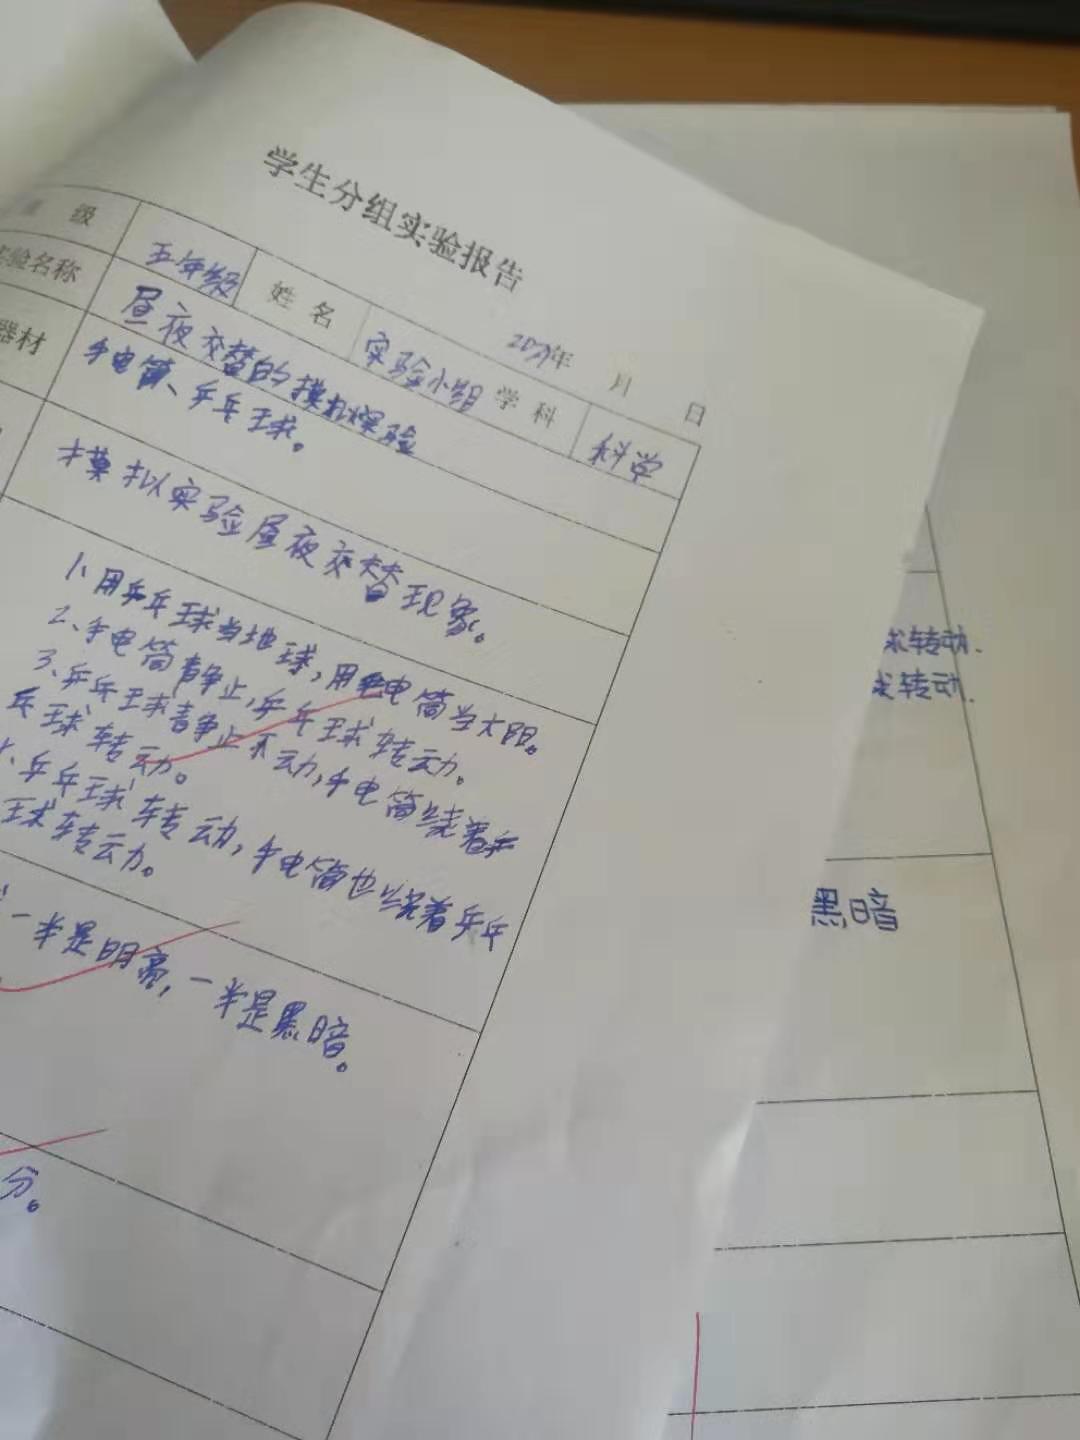 学生分组实验报告
2021年 月 日
级 五年级 姓名 实验小组 学科 科学
验名称 昼夜交替的模拟实验
器材 手电筒、乒乓球。
模拟实验昼夜交替现象。
1、用乒乓球当地球,用电筒当太阳。
2、手电筒静止,乒乓球转动。
3、乒乓球静止不动,手电筒绕着乒
乓球转动。
、乒乓球转动,手电筒也绕着乒乓
球转动。
一半是明亮,一半是黑暗。
分。
球转动.
转动.
黑暗